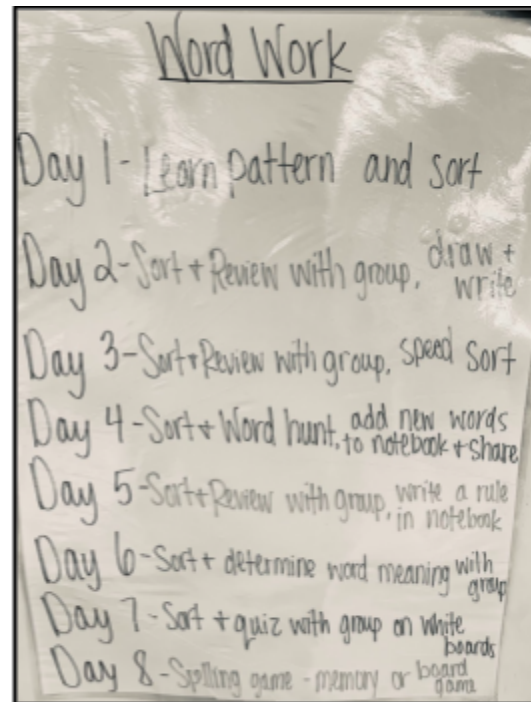 Word Work
Day 1 - Learn pattern and sort
Day 2 - Sort + Review with group, draw +
write
Day 3 - Sort + Review with group, speed sort
Day 4 - Sort + Word hunt, add new words
to notebook + share
Day 5 - Sort + Review with group, write a rule
in notebook
Day 6 - Sort + determine word meaning with
group
Day 7 - Sort + quiz with group on white
boards
Day 8 - Spelling game - memory or board
game